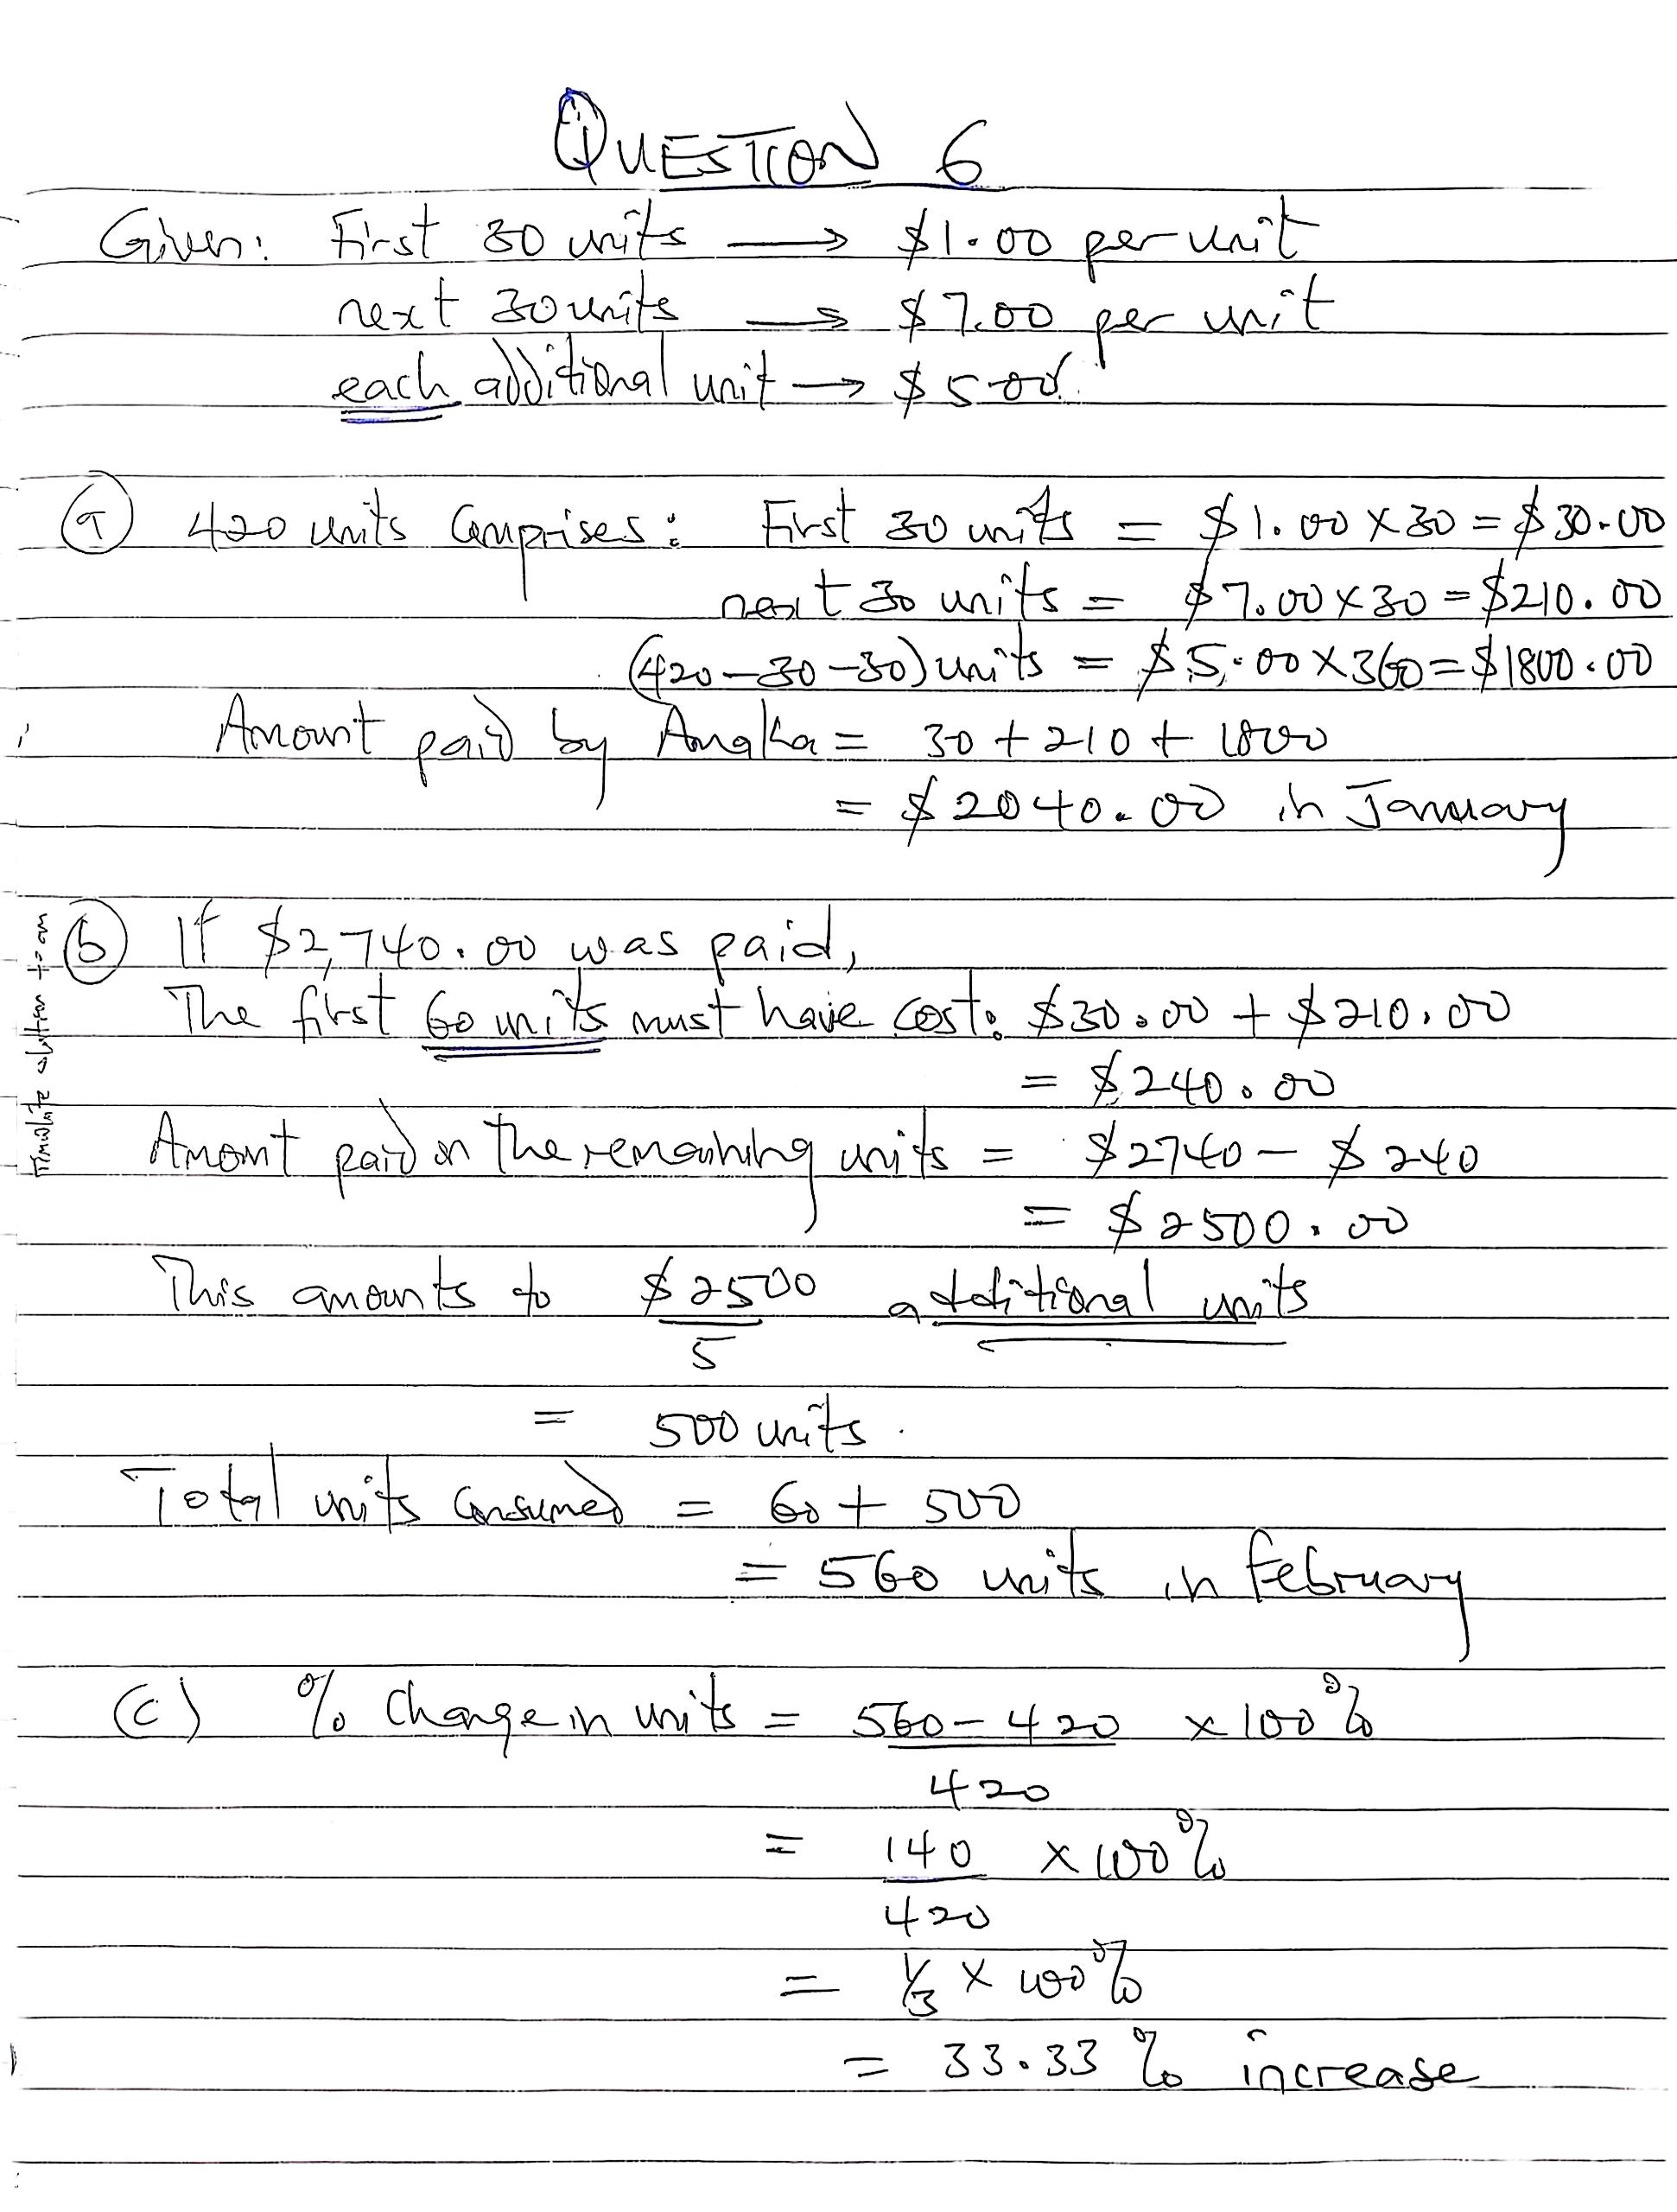 QUESTION 6
Given: First 30 units → $1.00 per unit
next 30 units → $7.00 per unit
each additional unit → $5.00
(a) 420 units comprises: First 30 units = $1.00 x 30 = $30.00
next 30 units = $7.00 x 30 = $210.00
(420-30-30) units = $5.00 x 360 = $1800.00
Amount paid by = 30 + 210 + 1800
= $2040.00 in January
(b) If $2,740.00 was paid,
The first 60 units must have cost: $30.00 + $210.00
= $240.00
Amount paid on the remaining units = $2740 - $240
= $2500.00
This amounts to $2500/5 additional units
= 500 units.
Total units consumed = 60 + 500
= 560 units in February
(c) % change in units = 560-420/420 x 100%
= 140/420 x 100%
= 1/3 x 100%
= 33.33 % increase